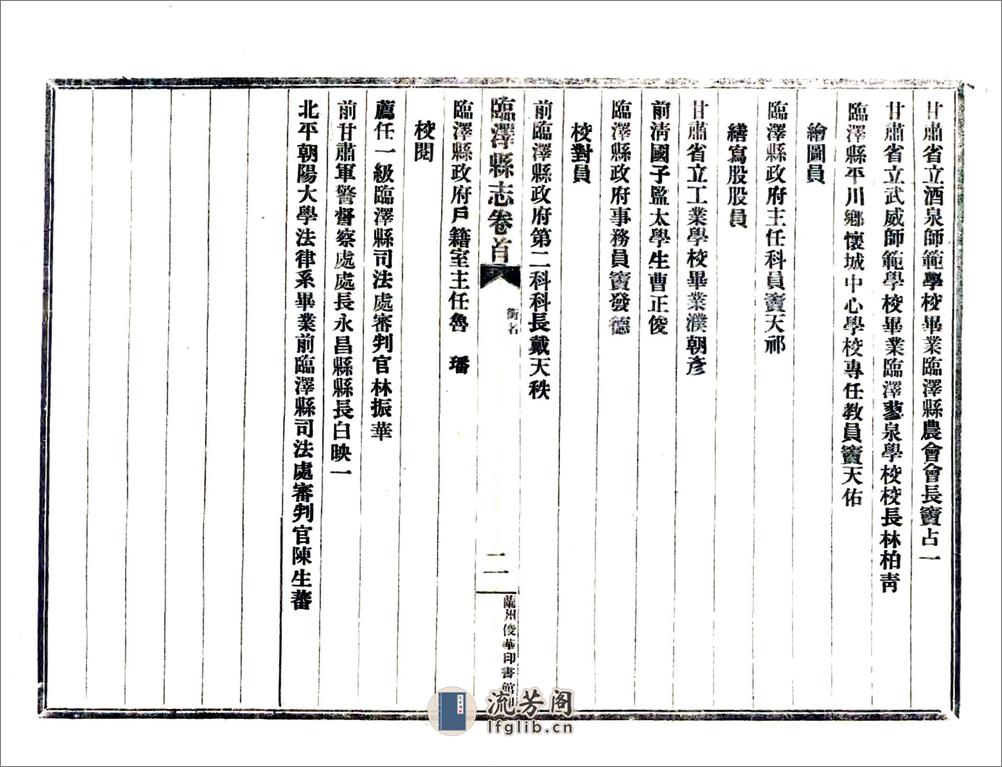 甘肅省立酒泉師範學校畢業臨澤縣農會會長竇占一
甘肅省立武威師範學校畢業臨澤蓼泉學校校長林柏靑
臨澤縣平川鄉懷城中心學校專任教員竇天佑
繪圖員
臨澤縣政府主任科員竇天祁
繕寫股股員
甘肅省立工業學校畢業濮朝彥
前清國子監太學生曹正俊
臨澤縣政府事務員竇發德
校對員
前臨澤縣政府第二科科長戴天秩
臨澤縣志卷首
銜名
二
蘭州俊華印書館
臨澤縣政府戶籍室主任魯 璠
校閱
薦任一級臨澤縣司法處審判官林振華
前甘肅軍警督察處處長永昌縣縣長白映一
北平朝陽大學法律系畢業前臨澤縣司法處審判官陳生蕃
流芳阁
lfglib.cn